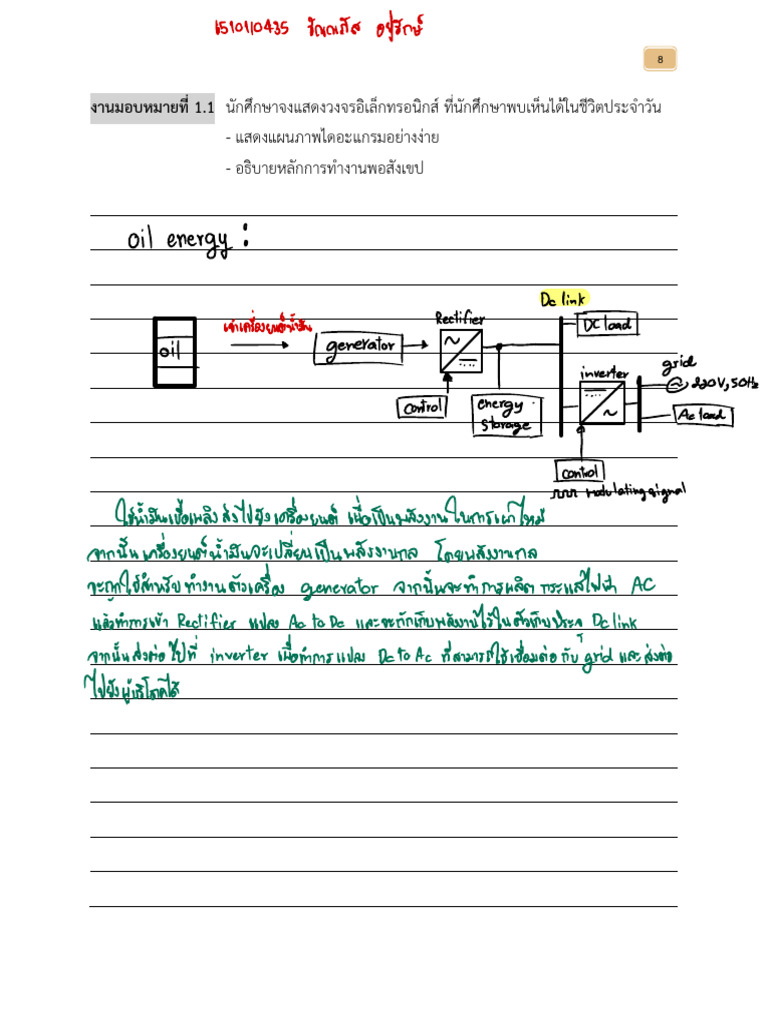 6510110435 ธัณณภัส อยู่รักษ์
8
งานมอบหมายที่ 1.1 นักศึกษาจงแสดงวงจรอิเล็กทรอนิกส์ ที่นักศึกษาพบเห็นได้ในชีวิตประจำวัน
- แสดงแผนภาพไดอะแกรมอย่างง่าย
- อธิบายหลักการทำงานพอสังเขป
oil energy :
Dc link
Rectifier
DC load
เข้าเครื่องยนต์น้ำมัน
oil
generator
grid
inverter
220V, 50Hz
control
energy
storage
Ac load
control
modulating signal
ใช้น้ำมันเชื้อเพลิงส่งไปยังเครื่องยนต์ เพื่อเป็นพลังงานในการเผาไหม้
จากนั้นเครื่องยนต์น้ำมันจะเปลี่ยนเป็นพลังงานกล โดยพลังงานกล
จะถูกใช้สำหรับทำงานตัวเครื่อง generator จากนั้นจะทำการผลิตกระแสไฟฟ้า AC
แล้วทำการเข้า Rectifier แปลง Ac to Dc และจะกักเก็บพลังงานไว้ในตัวเก็บประจุ Dc link
จากนั้นส่งต่อไปที่ inverter เพื่อทำการแปลง Dc to Ac ที่สามารถใช้เชื่อมต่อกับ grid และส่งต่อ
ไปยังผู้บริโภคได้